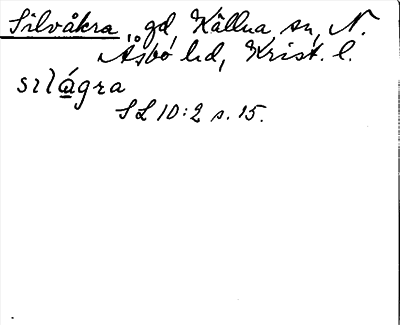 Silvåkra gd, Källna sn, N.
Åsbo hd, Krist. l.
sɩlågra
SL 10:2 s. 15.